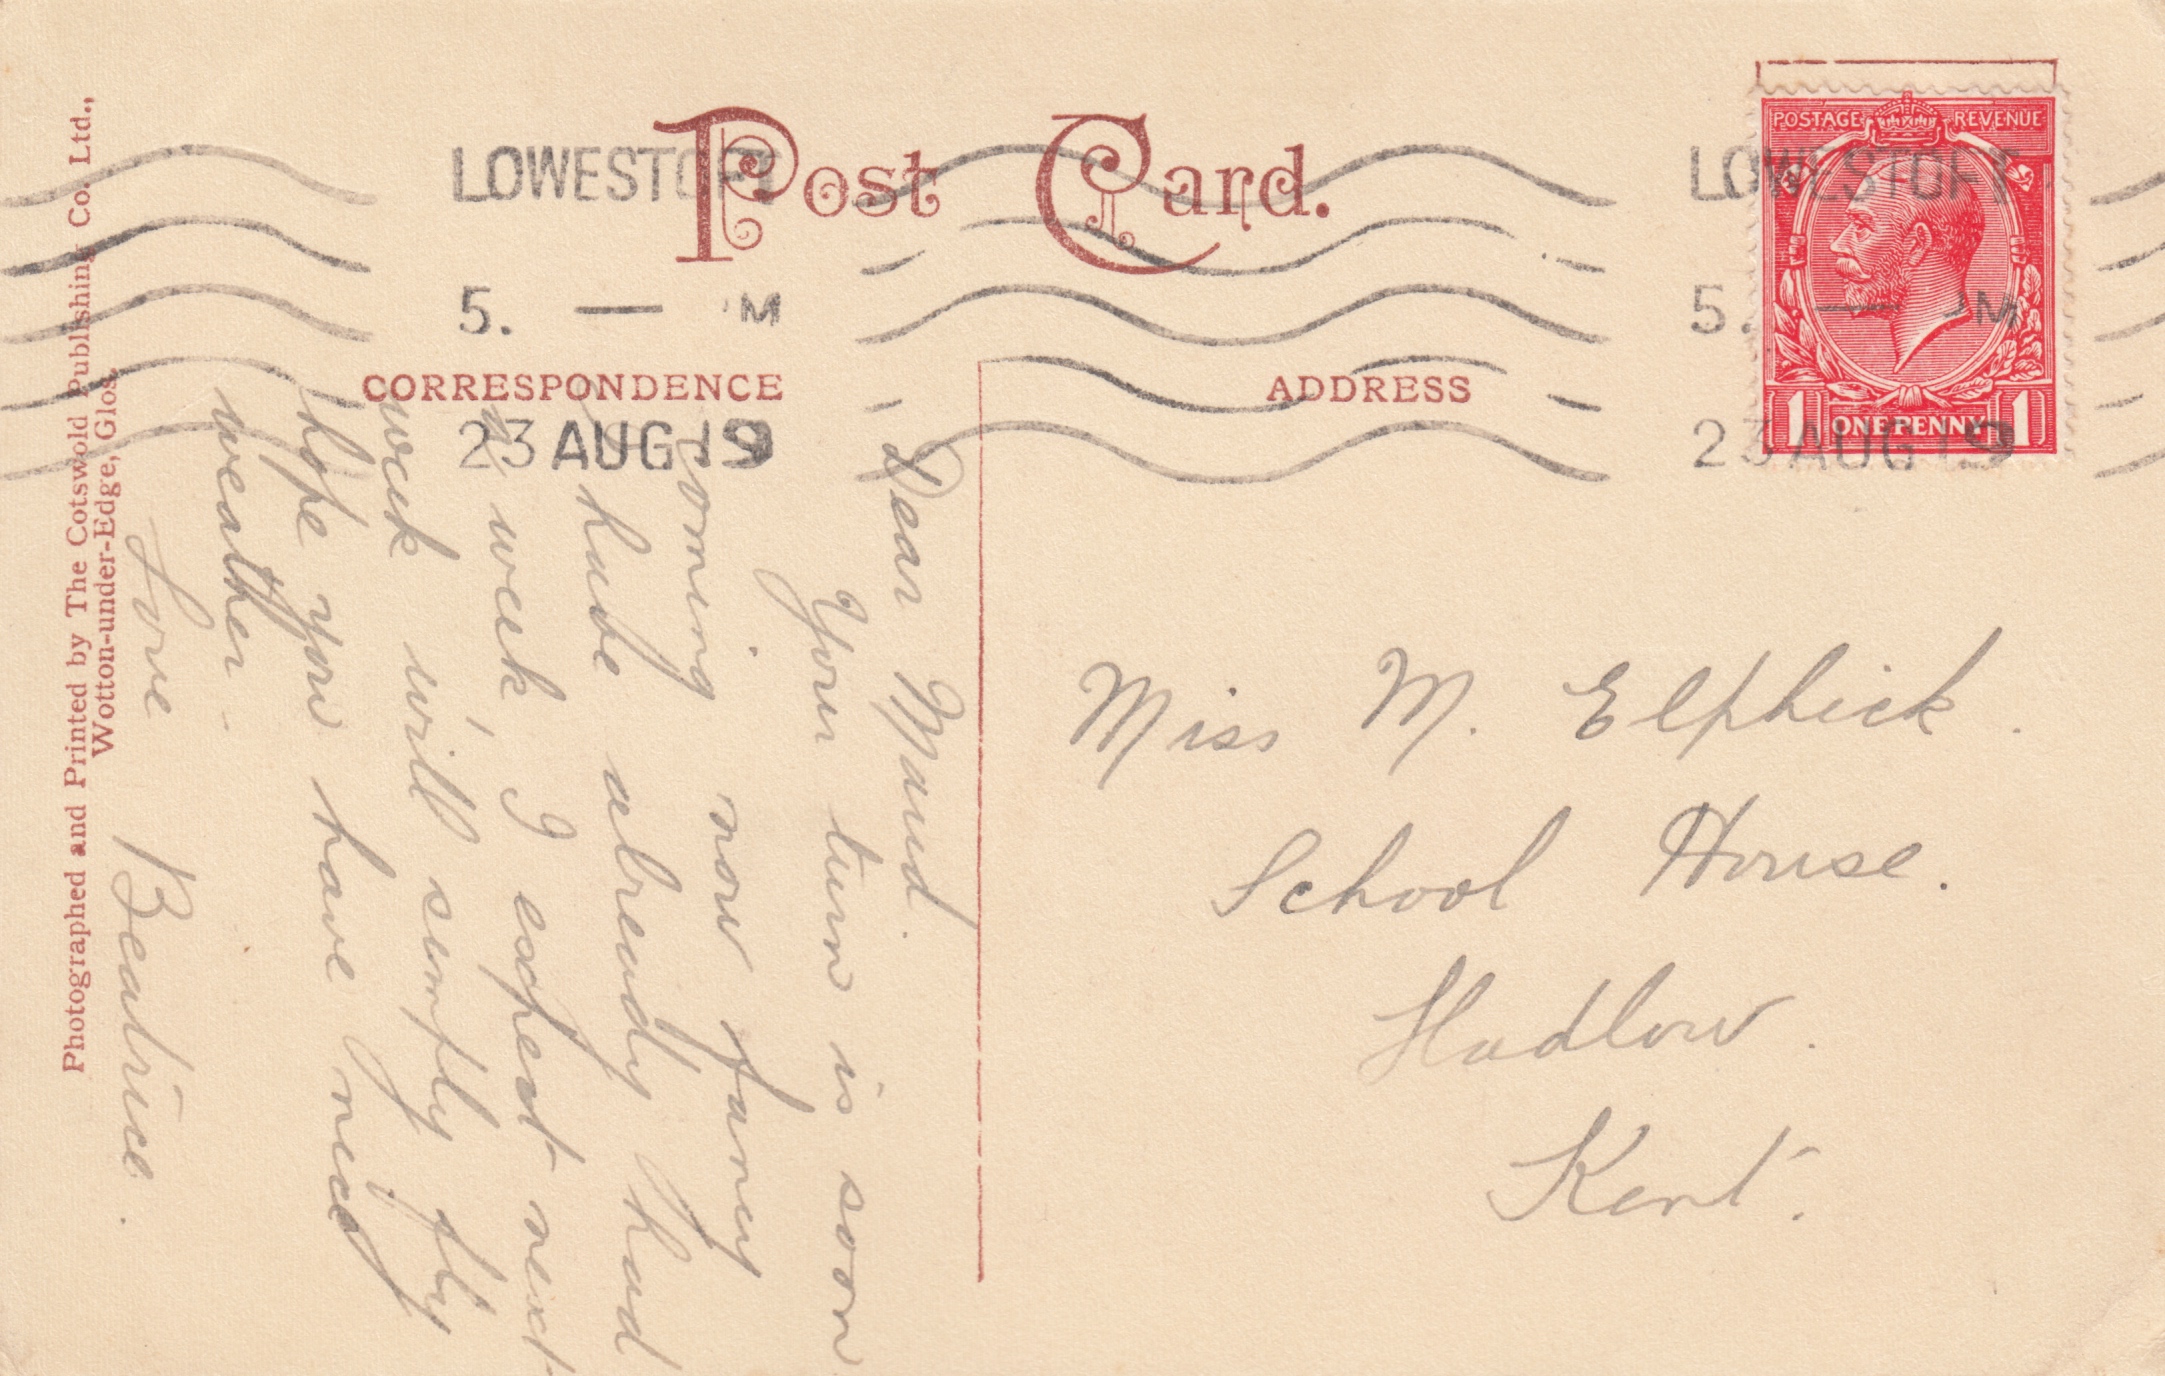 Post Card.
LOWESTOFT
5. — M
23 AUG 19
LOWESTOFT
5. — M
23 AUG 19
POSTAGE REVENUE
1 ONE PENNY 1
CORRESPONDENCE
ADDRESS
Dear Maud.
Your turn is soon
coming now fancy
I have already had
a week, I expect next
week will simply fly
I hope you have nice
weather.
Love Beatrice.
Miss M. Elphick.
School House.
Hadlow.
Kent.
Photographed and Printed by The Cotswold Publishing Co. Ltd.,
Wotton-under-Edge, Glos.